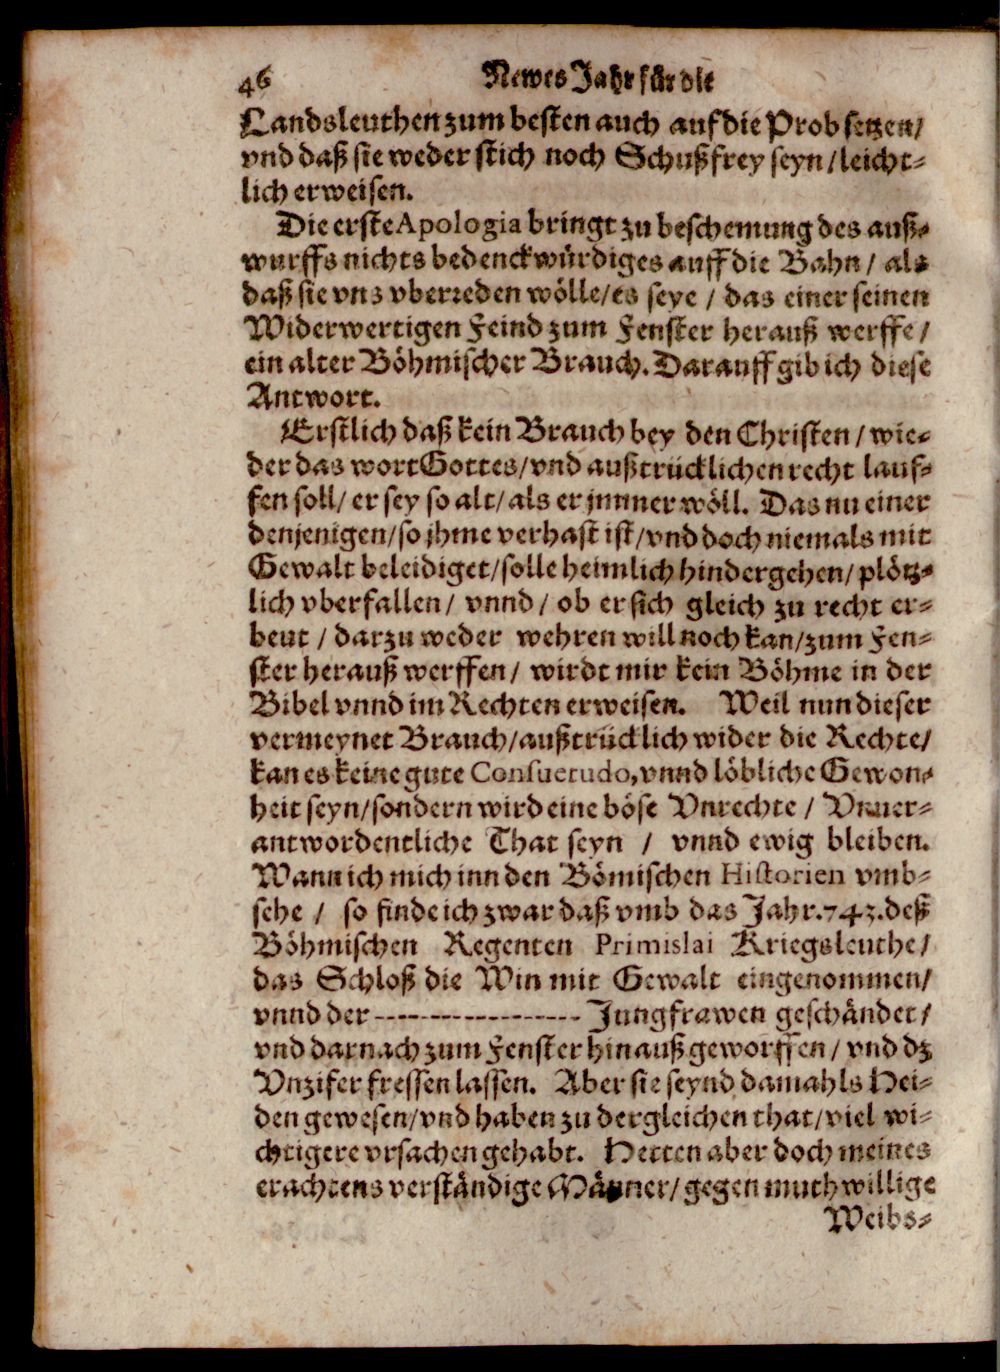 46 Newes Jahr für die
Landsleuthen zum besten auch auf die Prob setzen/
vnd daß sie weder stich noch Schußfrey seyn/leicht-
lich erweisen.
Die erste Apologia bringt zu beschemung des auß-
wurffs nichts bedenckwürdiges auff die Bahn / als
daß sie vns vberreden wölle/es seye / das einer seinen
Widerwertigen Feind zum Fenster herauß werffe /
ein alter Böhmischer Brauch. Darauff gib ich diese
Antwort.
Erstlich daß kein Brauch bey den Christen / wie-
der das wort Gottes/vnd außtrücklichen recht lauf-
fen soll/ er sey so alt/als er jmmer wöll. Das nu einer
denjenigen/so jhme verhast ist/vnd doch niemals mit
Gewalt beleidiget/solle heimlich hindergehen/plötz-
lich vberfallen/ vnnd/ ob er sich gleich zu recht er-
beut / darzu weder wehren will noch kan/zum Fen-
ster herauß werffen/ wirdt mir kein Böhme in der
Bibel vnnd im Rechten erweisen. Weil nun dieser
vermeynet Brauch/außtrücklich wider die Rechte/
kan es keine gute Consuetudo, vnnd löbliche Gewon-
heit seyn/sondern wird eine böse Vnrechte / Vnuer-
antwordentliche That seyn / vnnd ewig bleiben.
Wann ich mich inn den Bömischen Historien vmb-
sehe / so finde ich zwar daß vmb das Jahr. 743. deß
Böhmischen Regenten Primislai Kriegsleuthe/
das Schloß die Win mit Gewalt eingenommen/
vnnd der ------------------ Jungfrawen geschändet/
vnd darnach zum Fenster hinauß geworffen / vnd dz
Vnzifer fressen lassen. Aber sie seynd damahls Hei-
den gewesen/vnd haben zu dergleichen that/viel wi-
chtigere vrsachen gehabt. Hetten aber doch meines
erachtens verständige Männer/gegen muthwillige
Weibs-